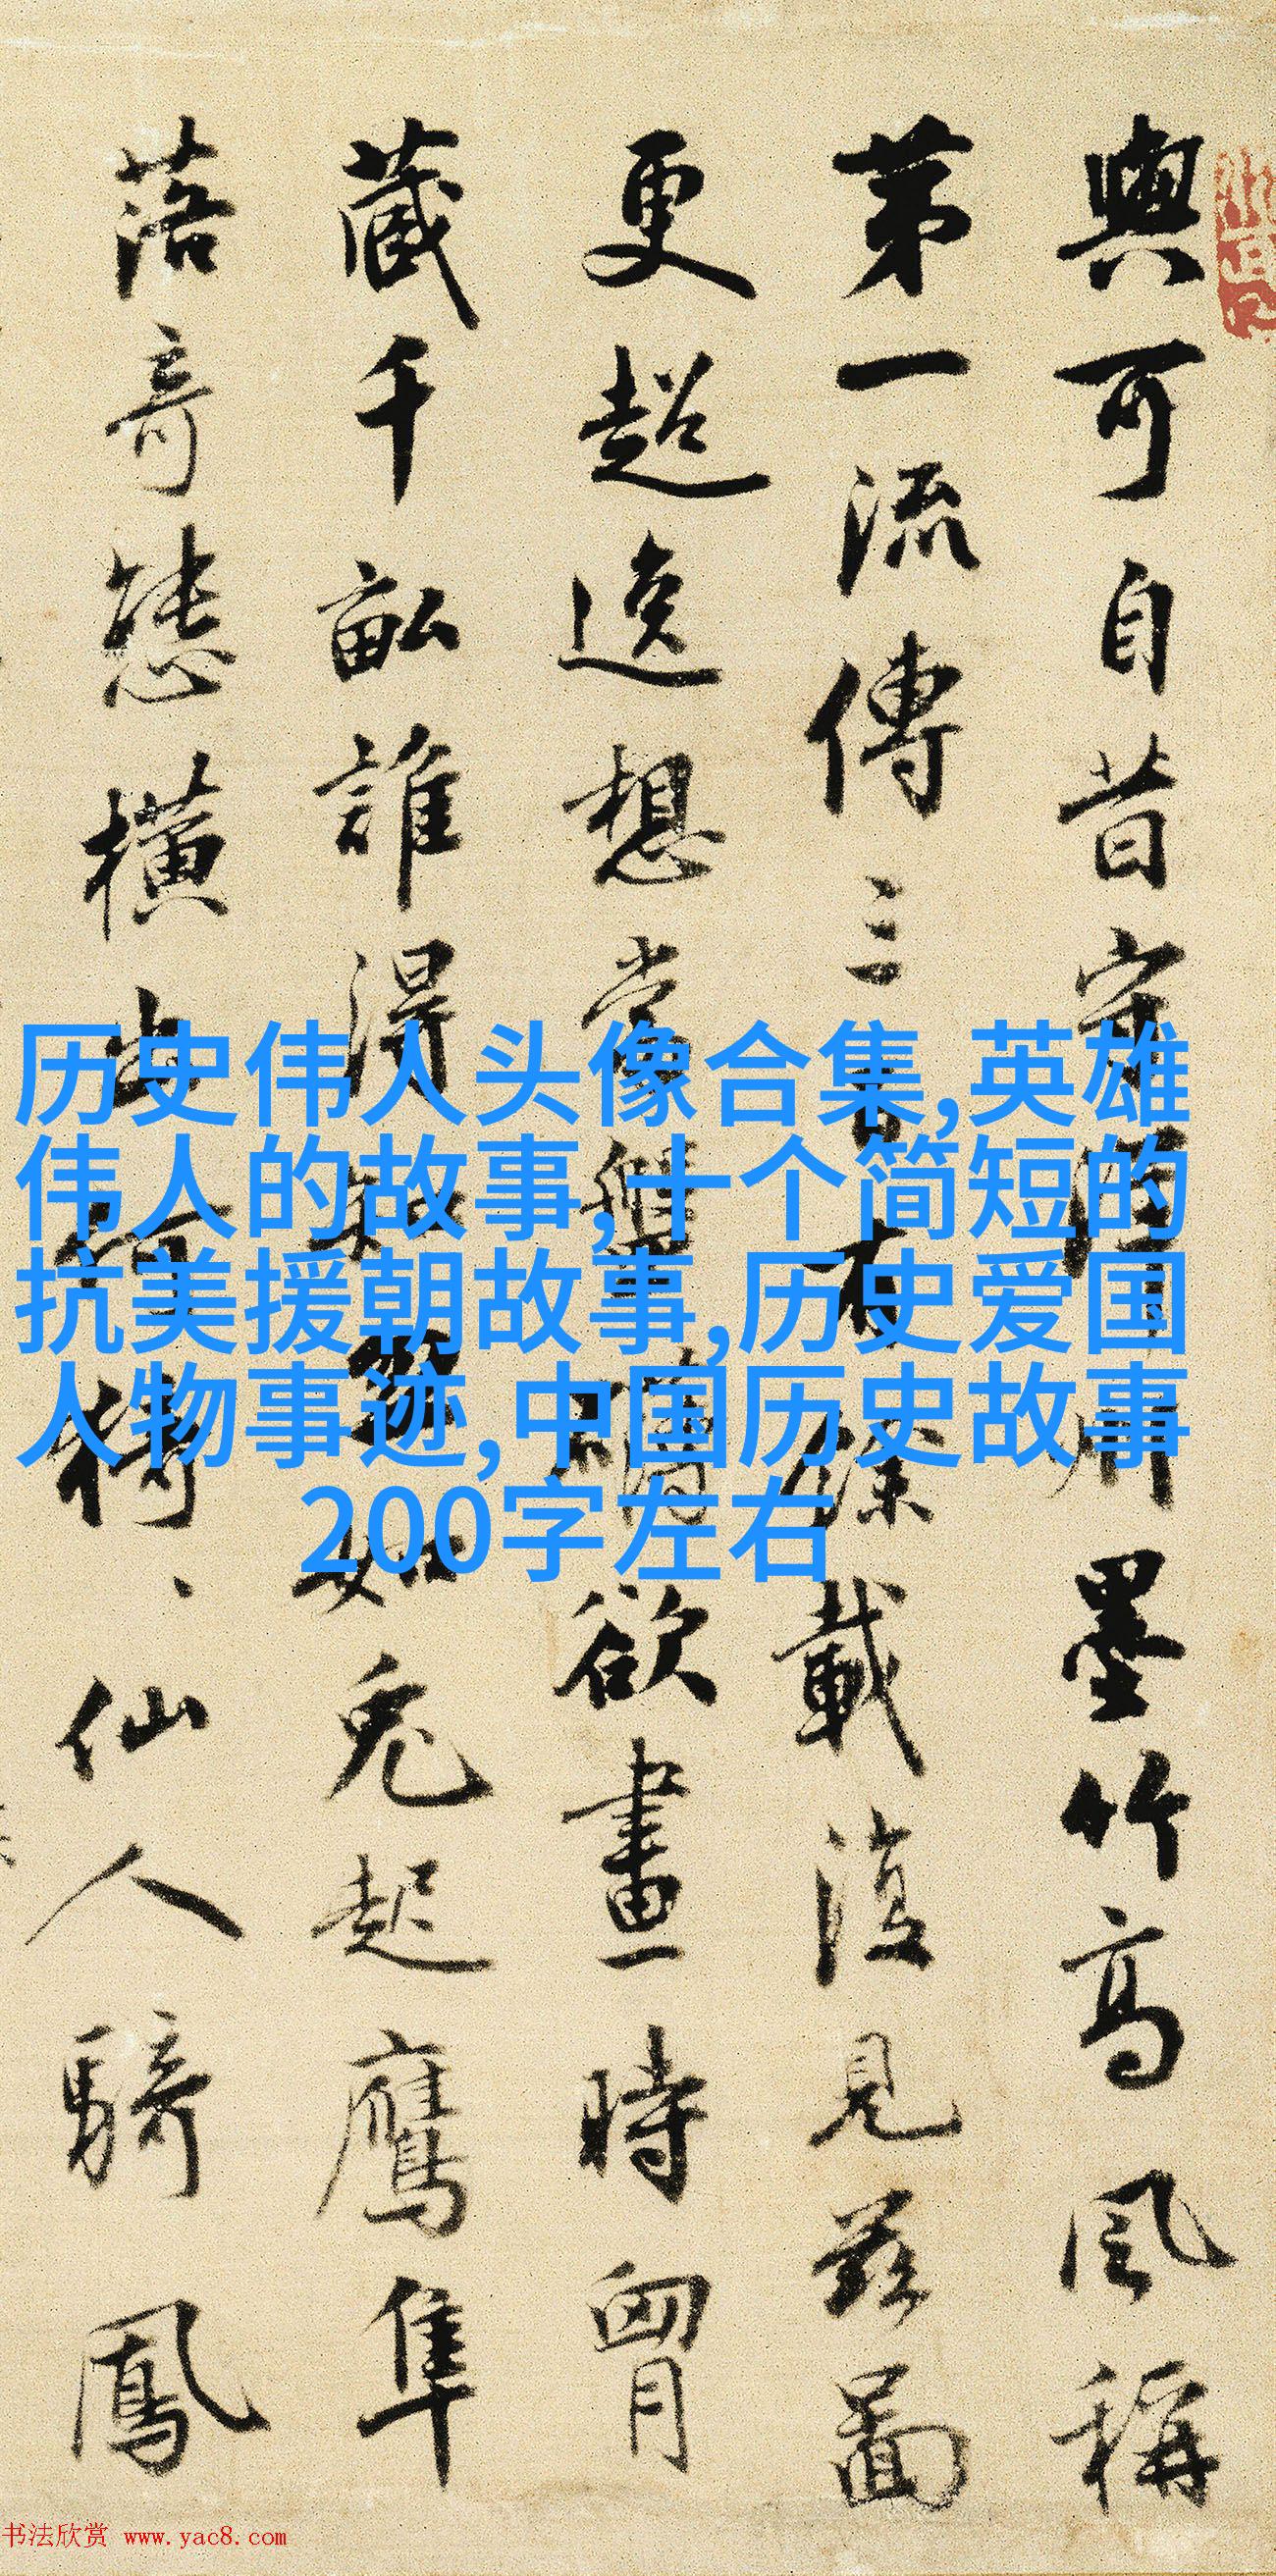 與可自昔守陵州墨竹高風稱
第一流傳三百有餘載復見茲圖
更超逸想當盤礴欲畫時胷
藏千畝誰得知翛如兔起鷹隼
落奇態橫出仍猗猗仙人騎鳳
历史伟人头像合集,英雄
伟人的故事,十个简短的
抗美援朝故事,历史爱国
人物事迹,中国历史故事
200字左右
书法欣赏 www.yac8.com